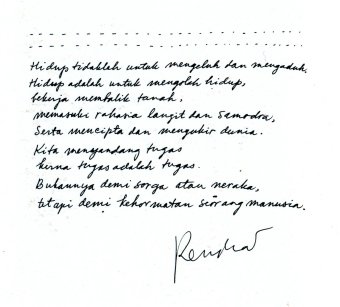 Hidup tidaklah untuk mengeluh dan mengaduh.
Hidup adalah untuk mengolah hidup,
bekerja membalik tanah,
memasuki rahasia langit dan samodra,
Serta mencipta dan mengukir dunia.
Kita menyandang tugas
kerna tugas adalah tugas.
Bukannya demi sorga atau neraka,
tetapi demi kehormatan seorang manusia.
Rendra